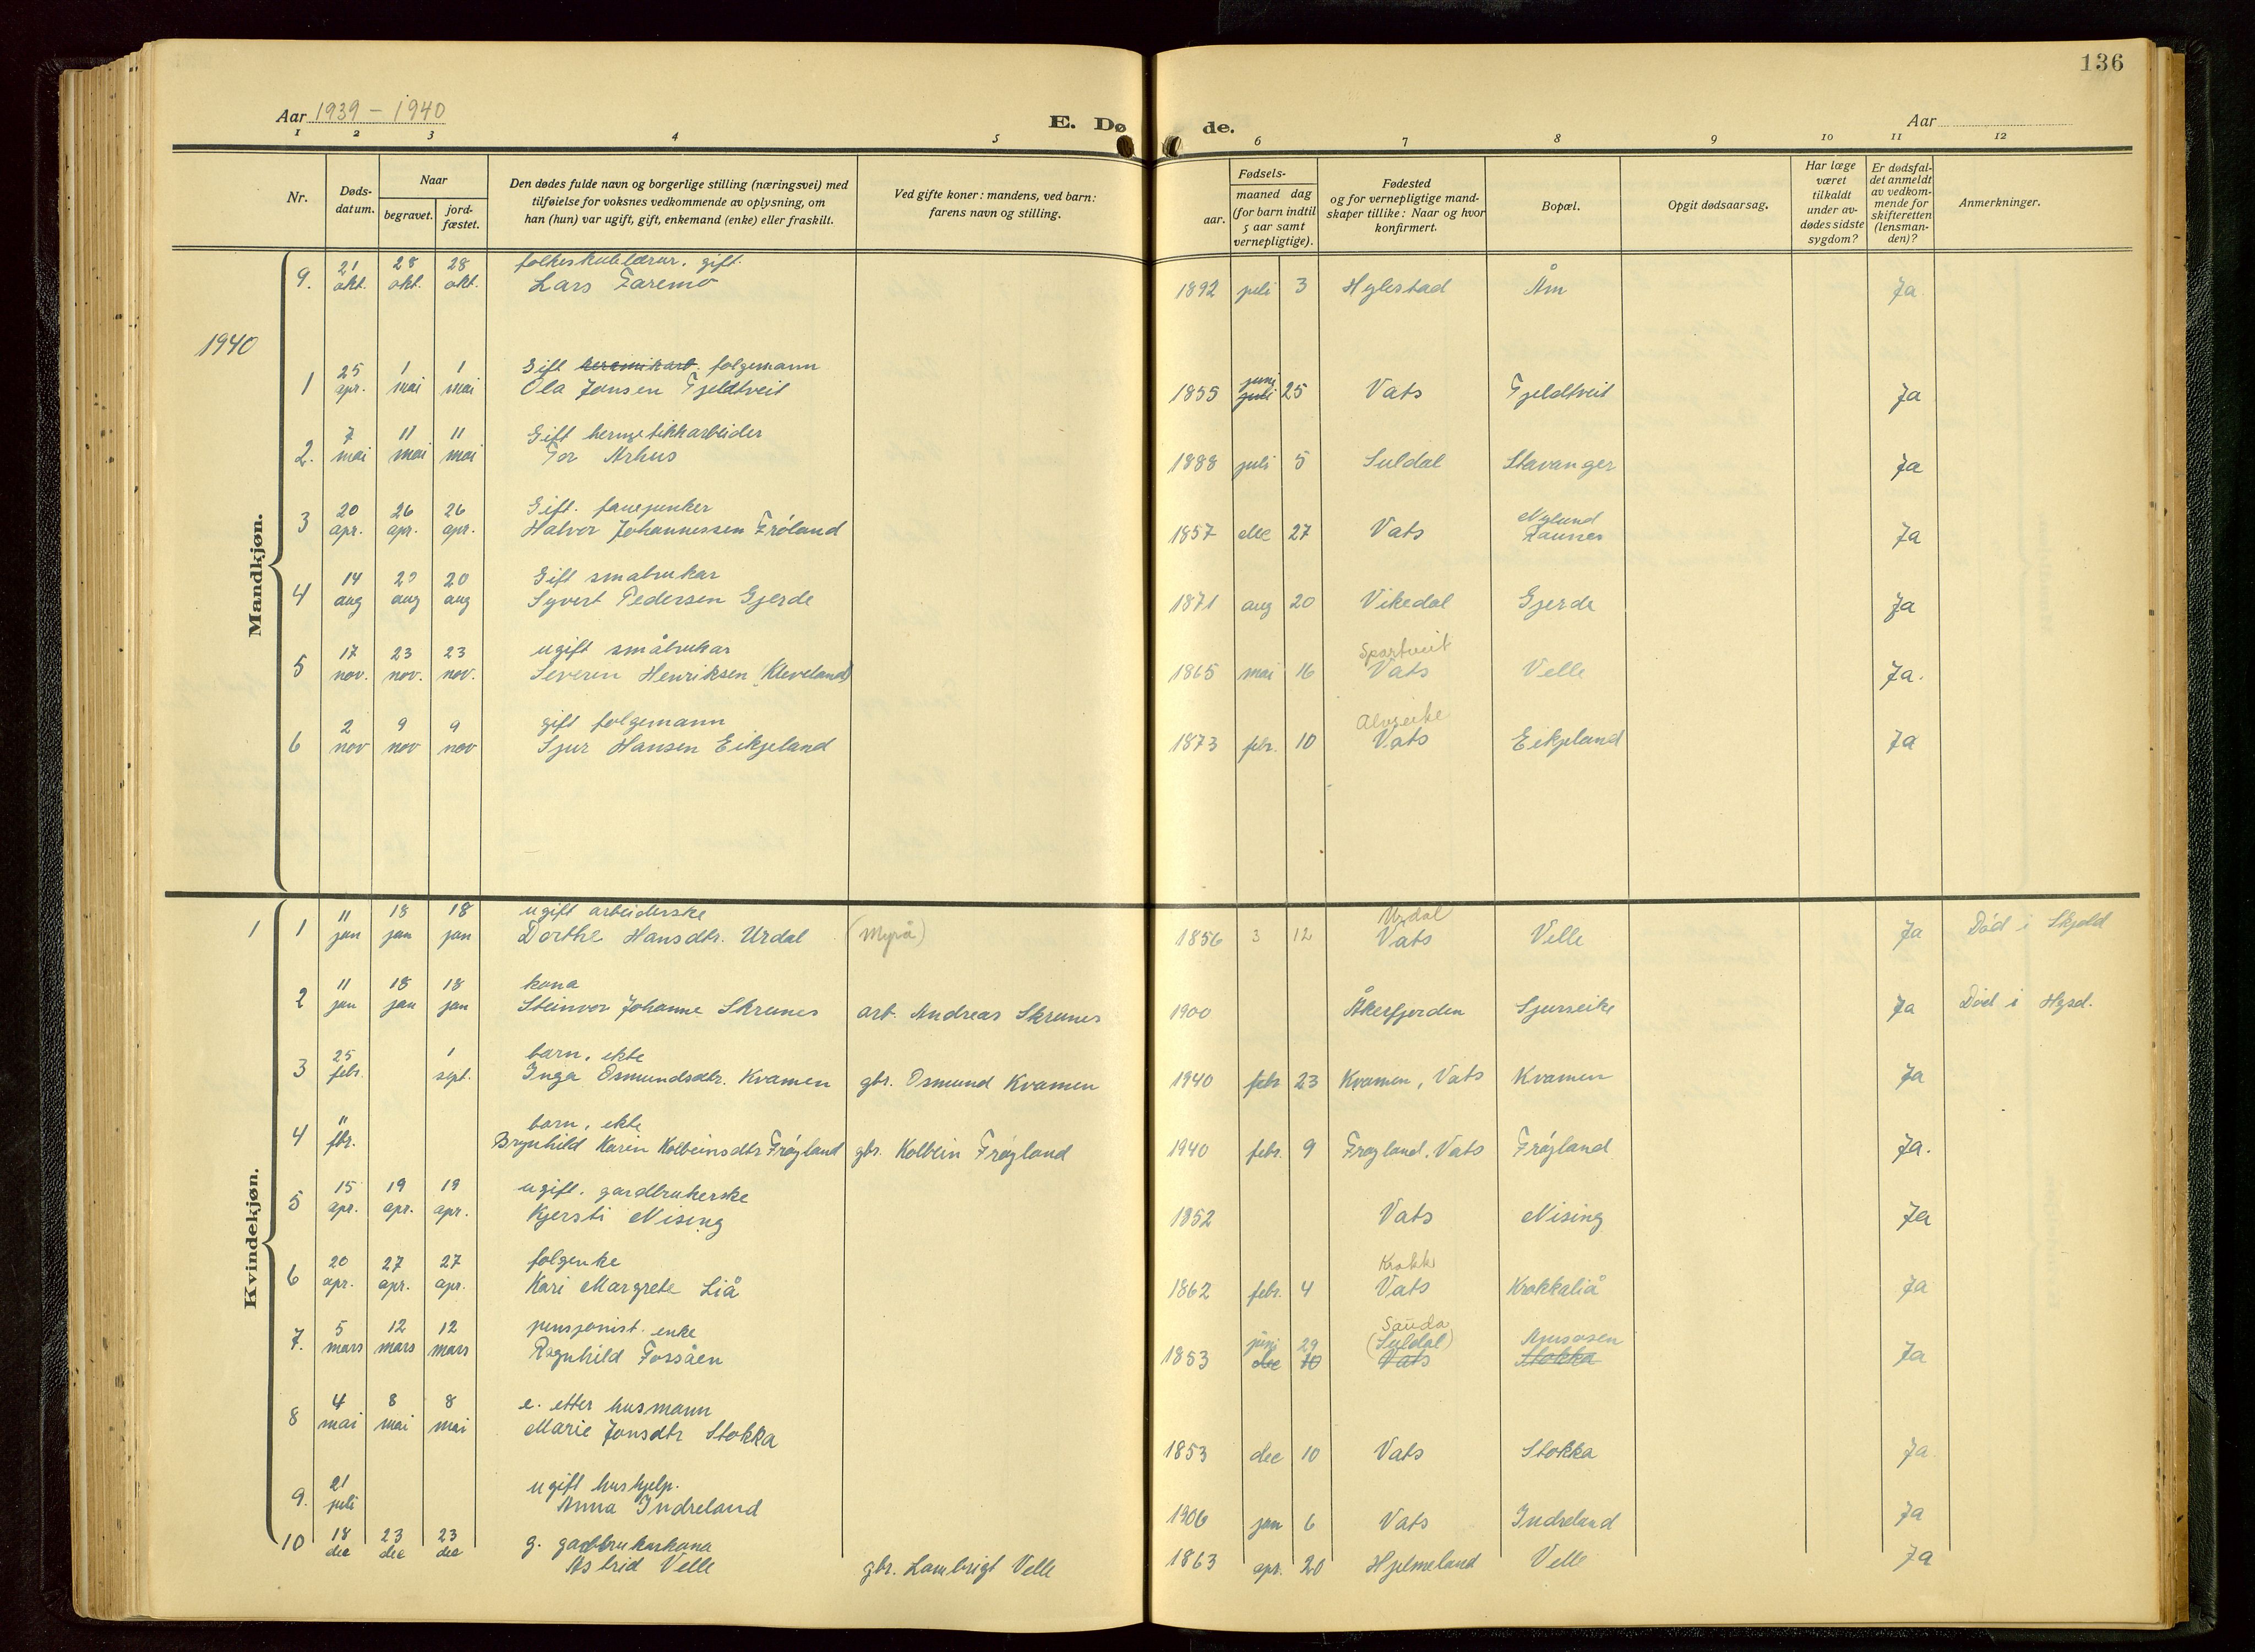 136
Aar 1939 – 1940
E. Døde.
Aar
1 2 3 4 5 6 7 8 9 10 11 12
Nr.
Døds-datum.
Naar
begravet.
jord-fæstet.
Den dødes fulde navn og borgerlige stilling (næringsvei) med
tilføielse for voksnes vedkommende av oplysning, om
han (hun) var ugift, gift, enkemand (enke) eller fraskilt.
Ved gifte koner: mandens, ved barn:
farens navn og stilling.
Fødsels-
aar.
maaned dag
(for barn indtil
5 aar samt
vernepligtige).
Fødested
og for vernepligtige mand-
skaper tillike: Naar og hvor
konfirmert.
Bopæl.
Opgit dødsaarsag.
Har læge
været
tilkaldt
under av-
dødes sidste
sygdom?
Er dødsfal-
det anmeldt
av vedkom-
mende for
skifteretten
(lensman-
den)?
Anmerkninger.
Mandkjøn.
21 28 28 folkeskulelærar. gift.
9. okt. okt. okt. Lars Faremo 1892 juli 3 Hylestad Åm Ja
1940
25 1 1 Gift folgemann juni
1 apr. mai mai Ola Jonsen Fjeldtveit 1855 juli 25 Vats Fjeldtveit Ja
7 11 11 Gift hermetikkarbeider
2. mai mai mai Tor Århus 1888 juli 5 Suldal Stavanger Ja
20 26 26 Gift. fanejunker Nylund
3 apr. apr. apr. Halvor Johannessen Frøland 1857 dec 27 Vats Raunes Ja
14 20 20 Gift småbrukar
4 aug aug aug Syvert Pedersen Gjerde 1871 aug 20 Vikedal Gjerde Ja
17 23 23 ugift småbrukar Spartveit
5 nov. nov. nov. Severin Henriksen (Kleveland) 1865 mai 16 Vats Velle Ja.
2 9 9 gift folgemann Alvseike
6 nov nov nov Sjur Hansen Eikjeland 1873 febr. 10 Vats Eikjeland Ja
Kvindekjøn.
11 18 18 ugift arbeiderske Urdal
1 1 jan jan jan Dorthe Hansdtr. Urdal (Myrå) 1856 3 12 Vats Velle Ja Død i Skjold
11 18 18 kona
2 jan jan jan Steinvor Johanne Skrunes arb. Andreas Skrunes 1900 Åkerfjorden Sjurseike Ja Død i Hgsd.
25 1 barn, ekte
3 febr. sept. Inga Osmundsdtr. Kvamen gbr. Osmund Kvamen 1940 febr 23 Kvamen, Vats Kvamen Ja
11 barn, ekte
4 fbr. Brynhild Karin Kolbeinsdtr Frøyland gbr. Kolbein Frøyland 1940 febr. 9 Frøyland, Vats Frøyland Ja.
15 19 19 ugift. gardbrukerske
5 apr. apr. apr. Kjersti Nising 1852 Vats Nising Ja
20 27 27 folgenke Krakk
6 apr. apr. apr. Kari Margrete Liå 1862 febr. 4 Vats Krakkaliå Ja
5 12 12 pensjonist. enke juni 29 Sauda (Suldal)
7. mars mars mars Ragnhild Fossåen 1853 dec 10 Vats Stokka Ja
4 8 8 e. etter husmann
8 mai mai mai Marie Jonsdtr Stokka 1853 dec 10 Vats Stokka Ja
21 ugift hushjelp.
9. juli Anna Indreland 1906 jan 6 Vats Indreland Ja
18 23 23 g. gardbrukarkona
10 dec dec dec Astrid Velle gbr. Lambrigt Velle 1863 apr. 20 Hjelmeland Velle Ja